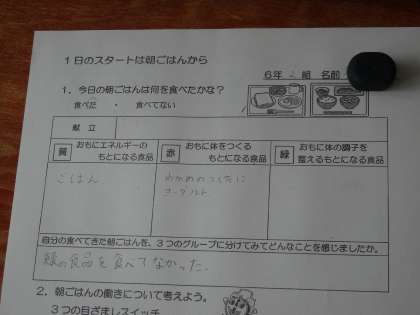 1日のスタートは朝ごはんから
6年 2 組 名前
1. 今日の朝ごはんは何を食べたかな？
食べた ・ 食べてない
献立
黄 おもにエネルギーのもとになる食品
赤 おもに体をつくるもとになる食品
緑 おもに体の調子を整えるもとになる食品
ごはん
わかめのつくだに
ヨーグルト
自分の食べてきた朝ごはんを、3つのグループに分けてみてどんなことを感じましたか。
緑の食品を食べてなかった。
2. 朝ごはんの働きについて考えよう。
3つの目ざましスイッチ